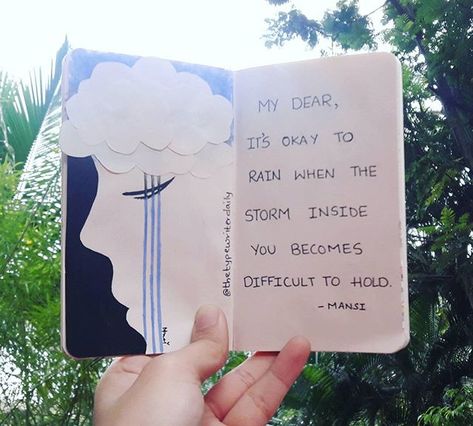 MY DEAR,
IT'S OKAY TO
RAIN WHEN THE
STORM INSIDE
YOU BECOMES
DIFFICULT TO HOLD.
- MANSI
@thetypewriterdaily